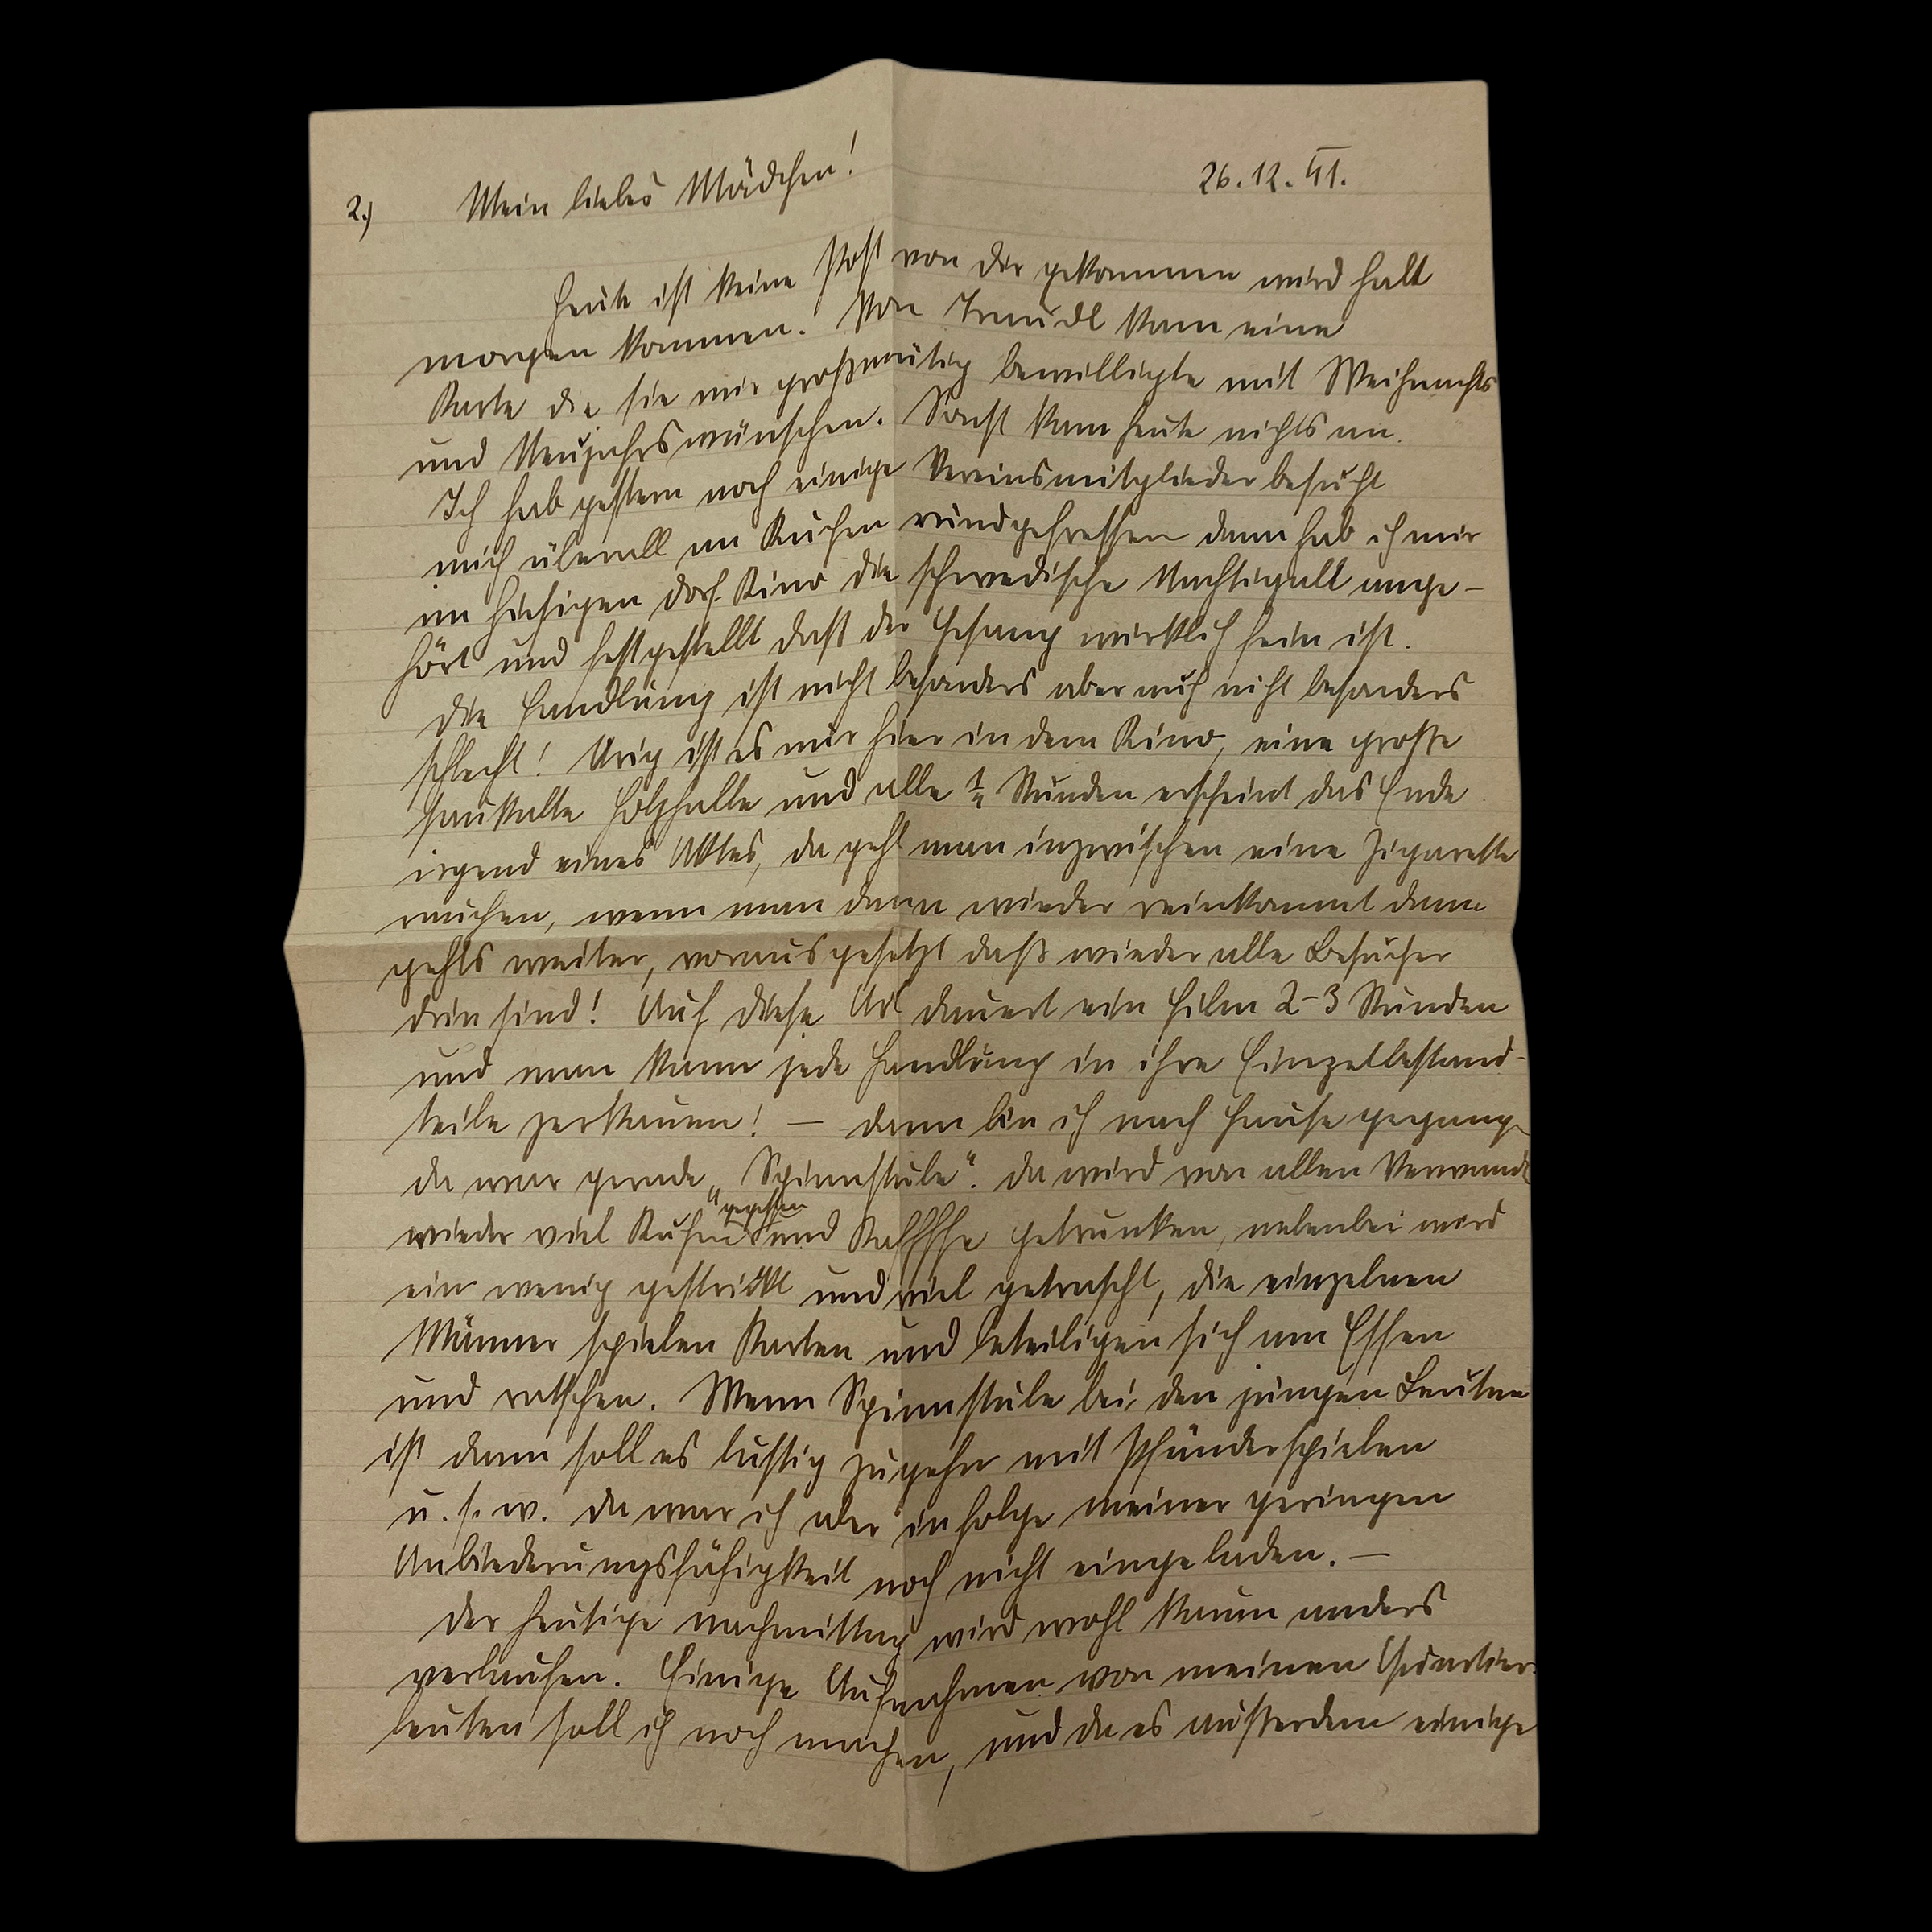 2.) Mein liebes Mädchen! 26.12.41.
Heute ist keine Post von Dir gekommen wird halt
morgen kommen. Von Traudl kam eine
Karte die sie mir großmütig bewilligte mit Weihnachts
und Neujahrswünschen. Sonst kam heute nichts an.
Ich hab gestern noch einige Vereinsmitglieder besucht
mich überall an Kuchen rundgefressen dann hab ich mir
im hiesigen Dorf-Kino die schwedische Nachtigall ange-
hört und festgestellt daß der Gesang wirklich fein ist.
Die Handlung ist nicht besonders aber auch nicht besonders
schlecht! Urig ist es nur hier in dem Kino, eine große
saukalte Holzhalle und alle Stunden erscheint das Ende
irgend eines Aktes, da geht man inzwischen eine Zigarette
rauchen, wenn man dann wieder reinkommt dann
gehts weiter, vorausgesetzt daß wieder alle Besucher
drin sind! Auf diese Art dauert ein Film 2-3 Stunden
und man kann jede Handlung in ihre Einzelbestand-
teile zerkauen! — Dann bin ich nach Hause gegange
da war gerade „Spinnstube". Da wird von allen Verwandt
wieder viel Kuchen gegessen und Kaffffe getrunken, nebenbei wird
ein wenig gestrickt und viel getratscht, die einzelnen
Männer spielen Karten und beteiligen sich am Essen
und ratschen. Wenn Spinnstube bei den jungen Leuten
ist dann soll es lustig zugehn mit Pfänderspielen
u.s.w. Da war ich aber infolge meiner geringen
Anbiederungsfähigkeit noch nicht eingeladen. —
Der heutige nachmittag wird wohl kaum anders
verlaufen. Einige Aufnahmen von meinen Quartier-
leuten soll ich noch machen, und da es außerdem einige